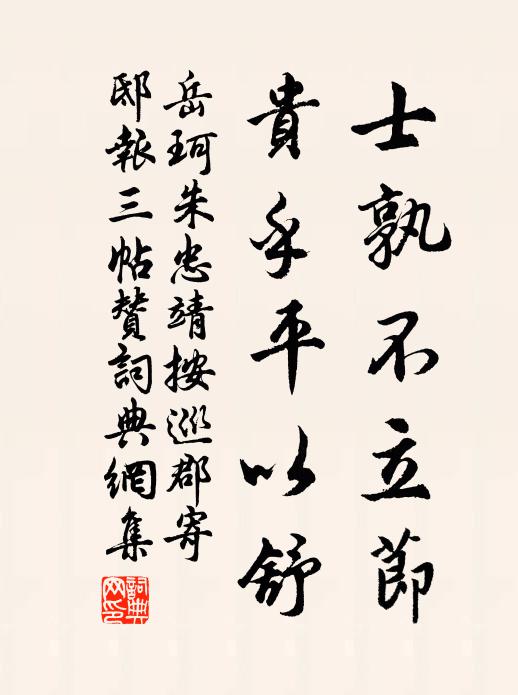 士孰不立節
貴乎平以舒
岳珂朱忠靖按巡郡寄
邸報三帖贊詞典網集
詞典
网印